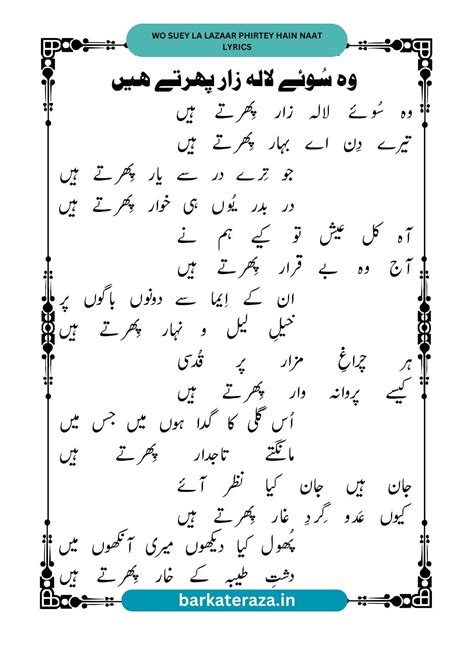 WO SUEY LA LAZAAR PHIRTEY HAIN NAAT
LYRICS
وہ سُوئے لالہ زار پھرتے ہیں
وہ سُوئے لالہ زار پھِرتے ہیں
تیرے دِن اے بہار پھِرتے ہیں
جو تِرے در سے یار پھِرتے ہیں
در بدر یُوں ہی خوار پھِرتے ہیں
آہ کل عیش تو کیے ہم نے
آج وہ بے قرار پھِرتے ہیں
ان کے اِیما سے دونوں باگوں پر
خیلِ لیل و نہار پھِرتے ہیں
ہر چراغِ مزار پر قُدسی
کیسے پروانہ وار پھِرتے ہیں
اُس گلی کا گدا ہوں میں جس میں
مانگتے تاجدار پھِرتے ہیں
جان ہیں جان کیا نظر آئے
کیوں عَدو گِردِ غار پھِرتے ہیں
پُھول کیا دیکھوں میری آنکھوں میں
دشتِ طیبہ کے خار پھِرتے ہیں
barkateraza.in